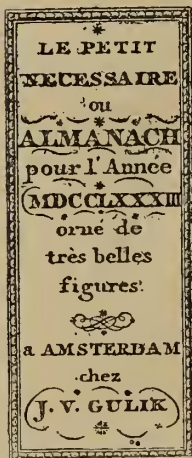 LE PETIT
NECESSAIRE
ou
ALMANACH
pour l'Année
MDCCLXXXIII
orné de
très belles
figures.
a AMSTERDAM
chez
J. V. GULIK